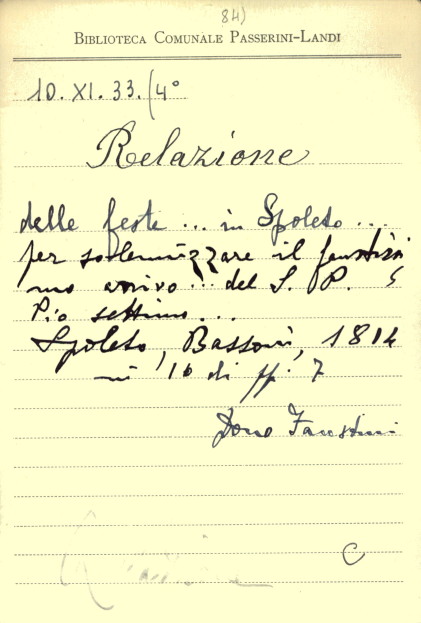 84)
BIBLIOTECA COMUNALE PASSERINI-LANDI
10. XI. 33. (4°
Relazione
delle feste ... in Spoleto ...
per solennizzare il faustissi
mo arrivo ... del S. P.
Pio settimo ...
Spoleto, Bassoni, 1814
in 16 di pp. 7
Dono Faustini
C